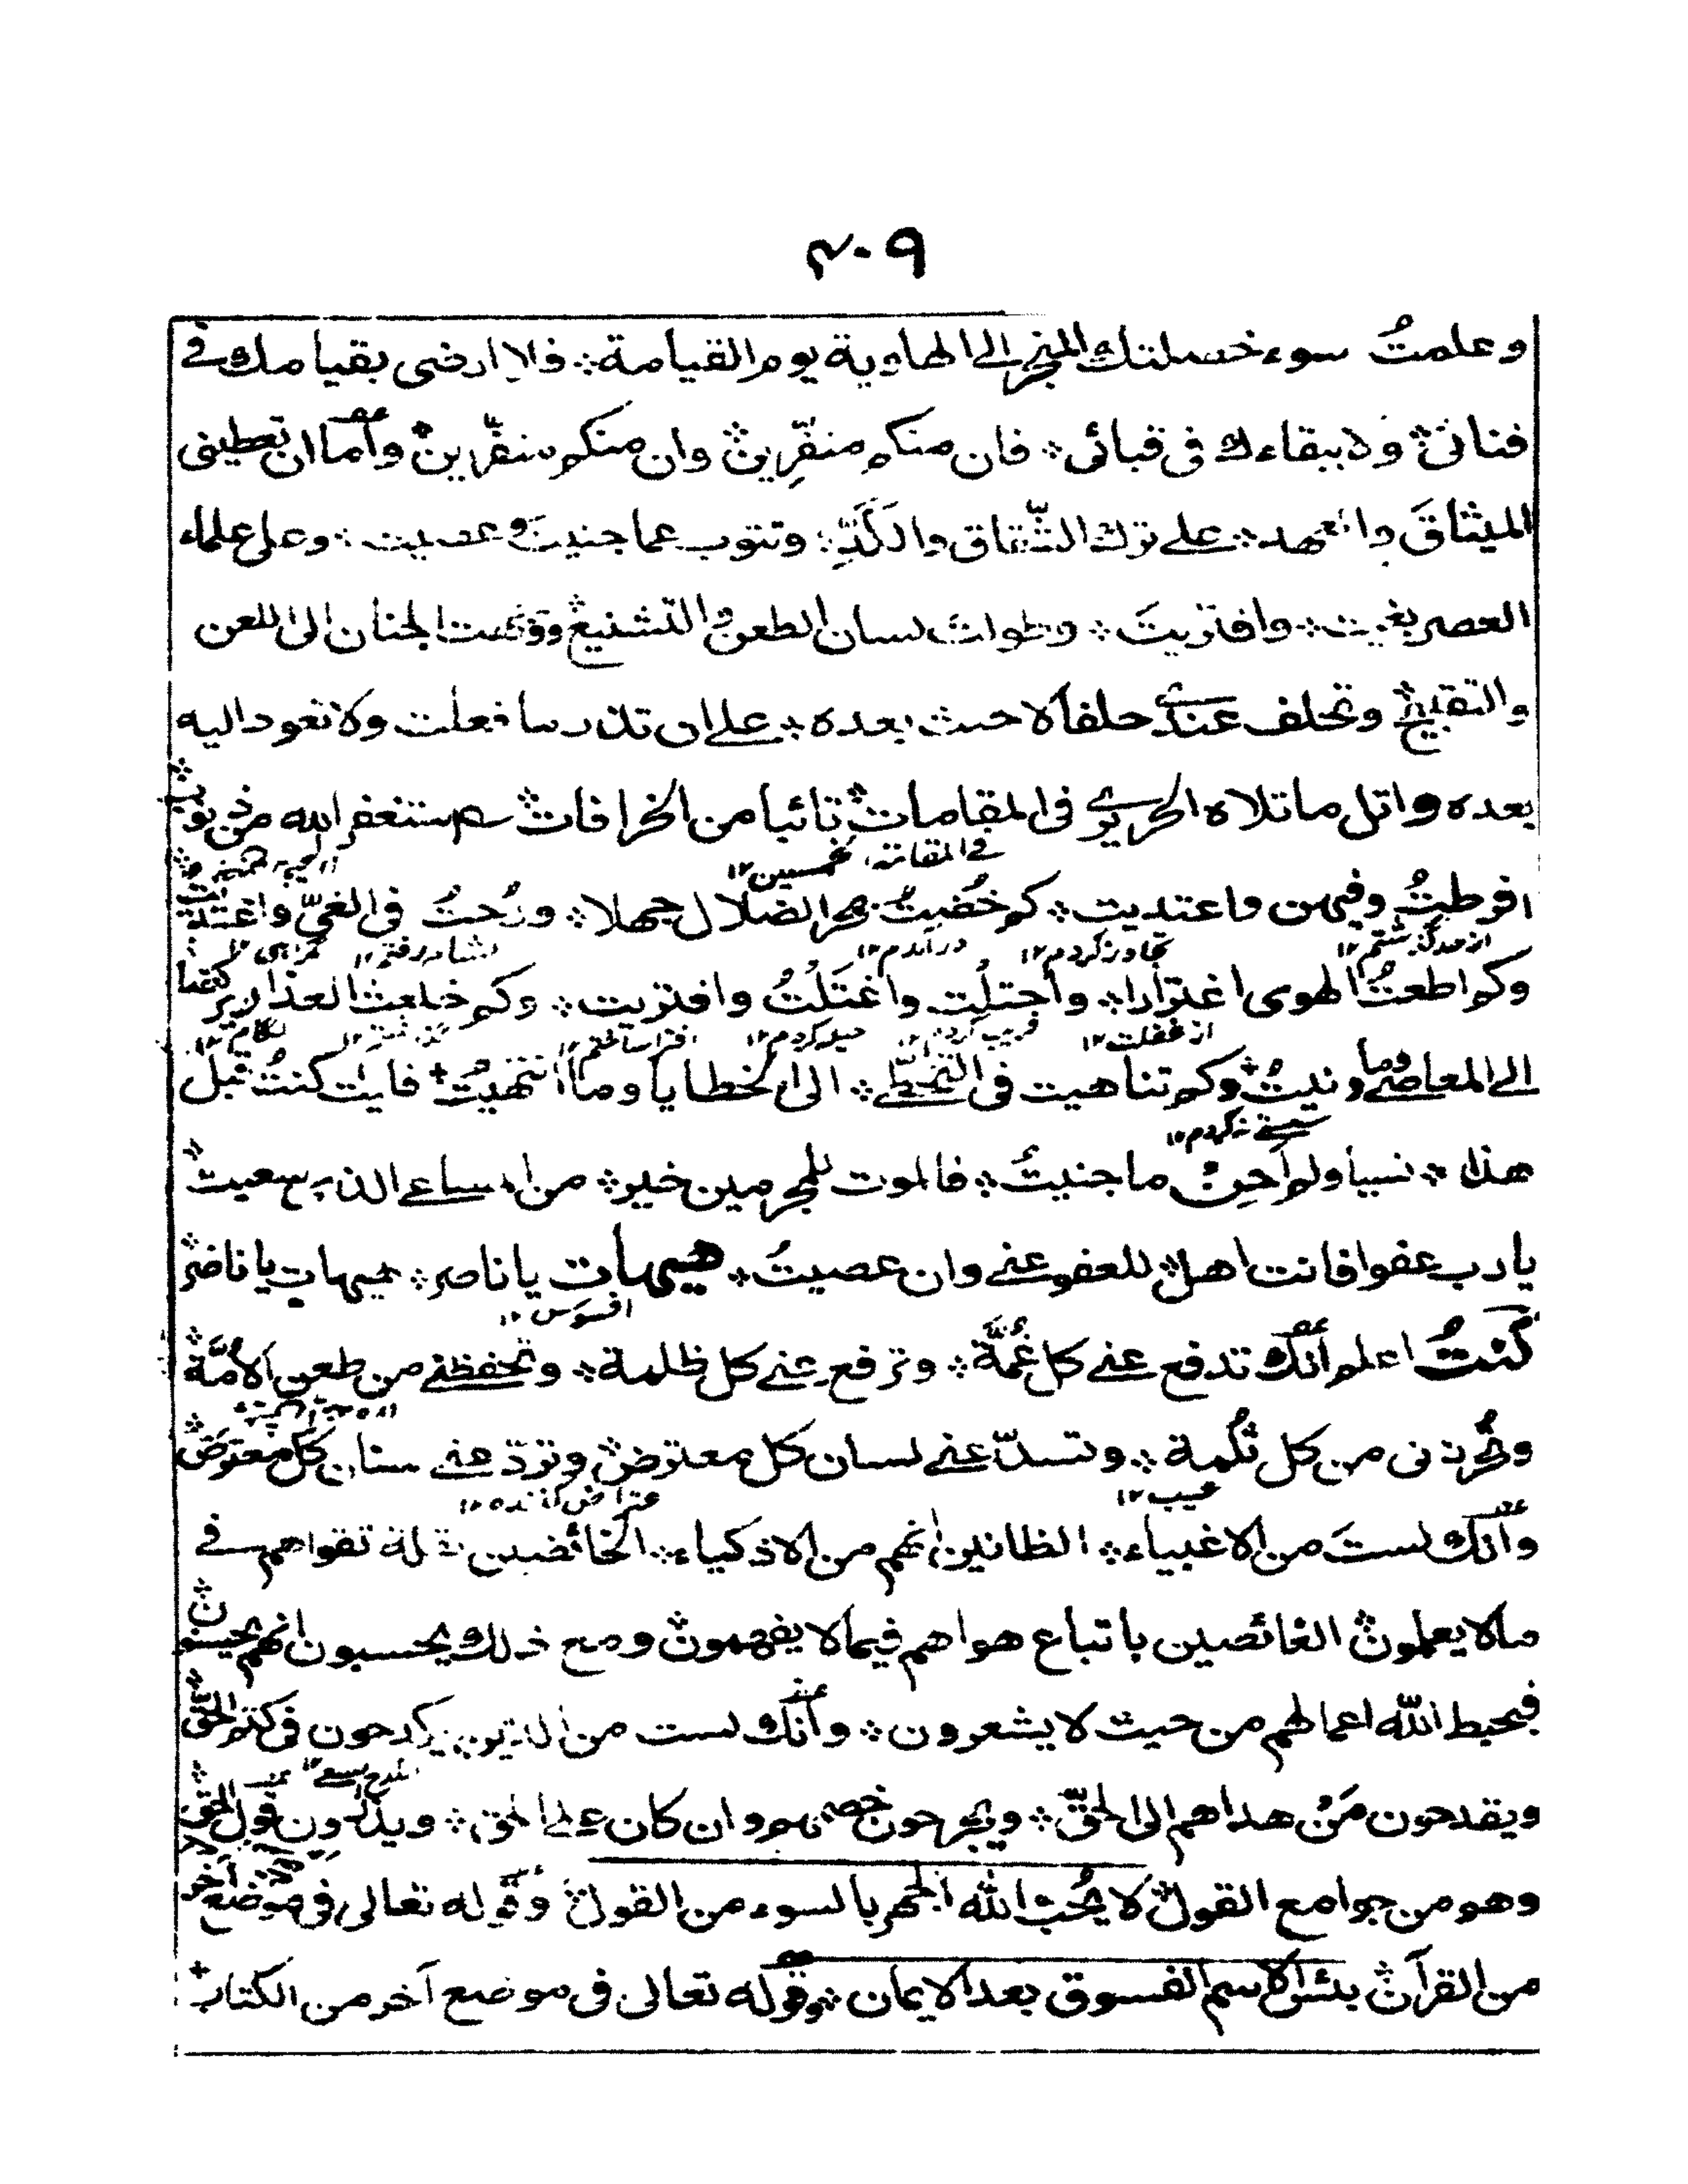 ٤٠٩
وعلمتُ سوء خصلتك المنجر الى الهاوية يوم القيامة ؞ فلا ارضى بقيامك فی
فنائی ؞ ولا ببقاءك فی قبائی ؞ فان منكم منفّرين ؞ وان منكم منفّرين ؞ وأما ان تعطينی
الميثاقَ والعهد ؞ علے ترك الشّقاق واللَّدَدِ ؞ وتتوب عما جنيت وعصيت ؞ وعلى علماء
العصر بغيت ؞ وافتريتَ ؞ وطولت لسان الطعن والتشنيع ؞ ووجهت الجنان الى اللعن
والتقبيح ؞ وتحلف عندی حلفا لا حنث بعده ؞ علے ان تذر ما فعلت ولا تعود اليه
بعده واتل ما تلاه الحريری فی المقامات ؞ تائبا من الخرافات ؞ استغفر الله من ذنوب ؞
فی المقامة الخمسين ١٢
افرطتُ فيهن واعتديت ؞ كم خُضتُ بحر الضلال جهلا ؞ ورُحتُ فی الغیّ واغتديت
از حد گذشتم ١٢ تجاوز كردم ١٢ درآمدم ١٢ گمراہی ١٢
وكم اطعتُ الهوى اغترارا ؞ واجتلْت واغتَلْتُ وافتريت ؞ وكم خلعت العذار ركضا
از غفلت ١٢ حيله كردم ١٢ افترا ساختم ١٢ لگام ١٢
الے المعاصی وما ونيتُ ؞ وكم تناهيت فی التخطّی ؞ الى الخطايا وما انتهيتُ ؞ فليت كنتُ قبل
سستی نكردم ١٢
هذا ؞ نسيا ولم اَجنِ ما جنيتُ ؞ فالموت للمجرمين خير ؞ من المساعی الذی سعيت ؞
يارب عفوا فانت اهل ؞ للعفو عنی وان عصيتُ ؞ هيهات يا ناصر ؞ هيهات يا ناضر ؞
افسوس ١٢
كنتُ اعلم أنك تدفع عنی كل غُمّة ؞ وترفع عنی كل ظلمة ؞ وتحفظنی من طعن الأمَّة ؞
وتُحرزنی من كل ثُلمة ؞ وتسدّ عنی لسان كل معترض ؞ وتردّ عنی سنان كل معترض ؞
عيب ١٢ اعتراض كننده ١٢
وانك لستَ من الاغبياء ؞ الظانين انهم من الاذكياء ؞ الخائضين بقلة تقواهم فی
ما لا يعلمون ؞ الغائصين باتباع هواهم فيما لا يفهمون ؞ ومع ذلك يحسبون انهم يحسنون ؞
فيحبط الله اعمالهم من حيث لا يشعرون ؞ وأنك لست من الذين يكدحون فی كتم الحقّ ؞
ويقدحون مَنْ هداهم الى الحقّ ؞ ويجرحون خصمهم وان كان على الحق ؞ ويذلون قول الحق ؞
وهو من جوامع القول ؞ لا يُحب الله الجهر بالسوء من القول ؞ وقوله تعالى فی موضع آخر
من القرآن ؞ بئس الاسم الفسوق بعد الايمان ؞ وقوله تعالى فی موضع آخر من الكتاب ؞